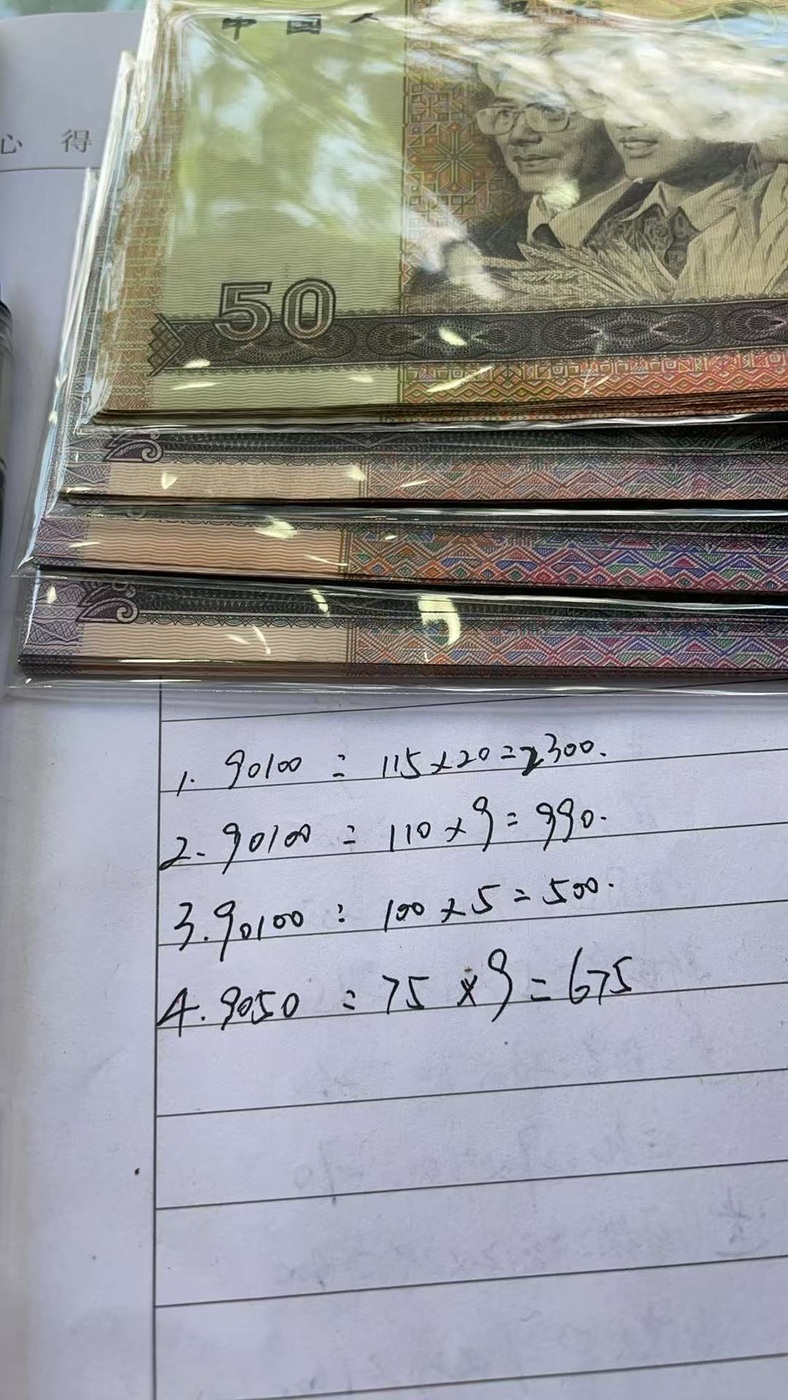 中国人
心得
50
1. 90100 : 115×20=2300.
2. 90100 : 110×9=990.
3. 90100 : 100×5=500.
4. 9050 : 75×9=675